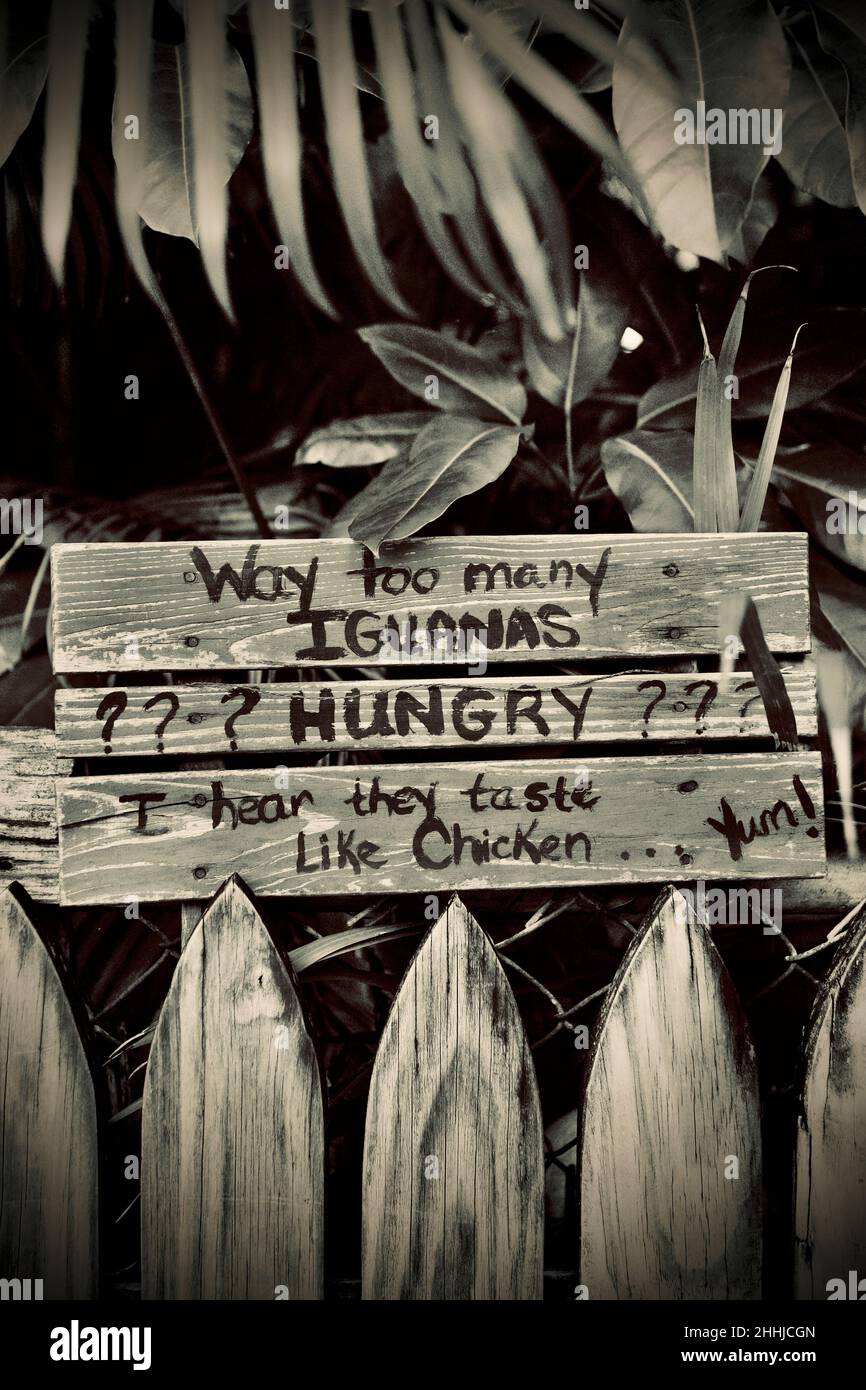 Way too many
IGUANAS
? ? ? HUNGRY ? ? ?
I hear they taste
Like Chicken .... Yum!
alamy
Image ID: 2HHJCGN
www.alamy.com